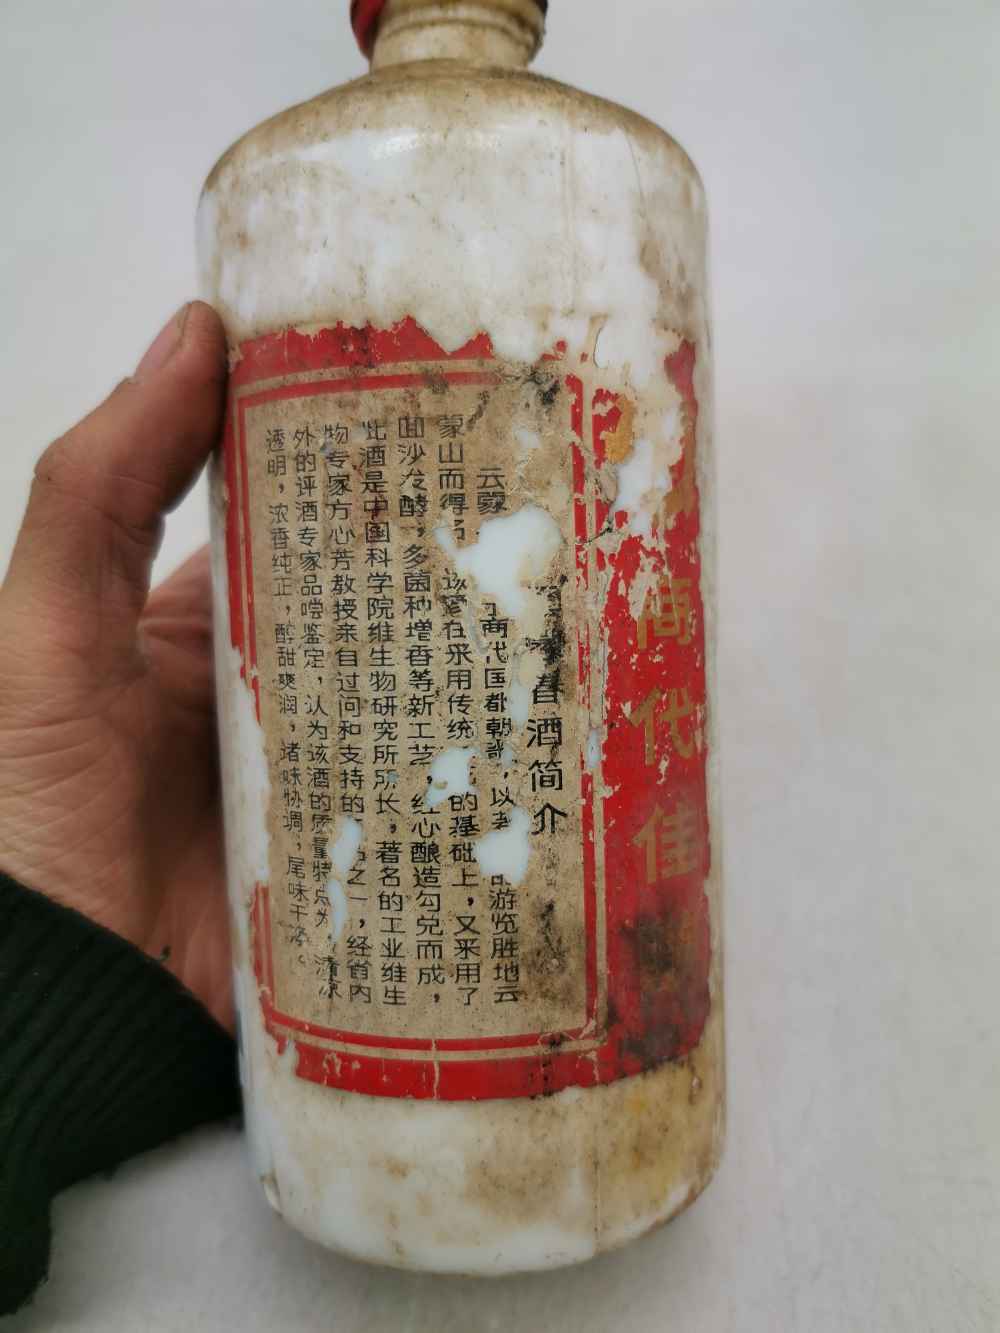 商代佳
春酒简介
云蒙 商代国都朝歌，以 游览胜地云
蒙山而得名 该 在采用传统 的基础上，又采用了
曲沙发酵，多菌种增香等新工艺，经心酿造勾兑而成，
此酒是中国科学院维生物研究所所长，著名的工业维生
物专家方心芳教授亲自过问和支持的 之一，经省内
外的评酒专家品尝鉴定，认为该酒的质量特点为，清凉
透明，浓香纯正，醇甜爽润，诸味协调，尾味干净。